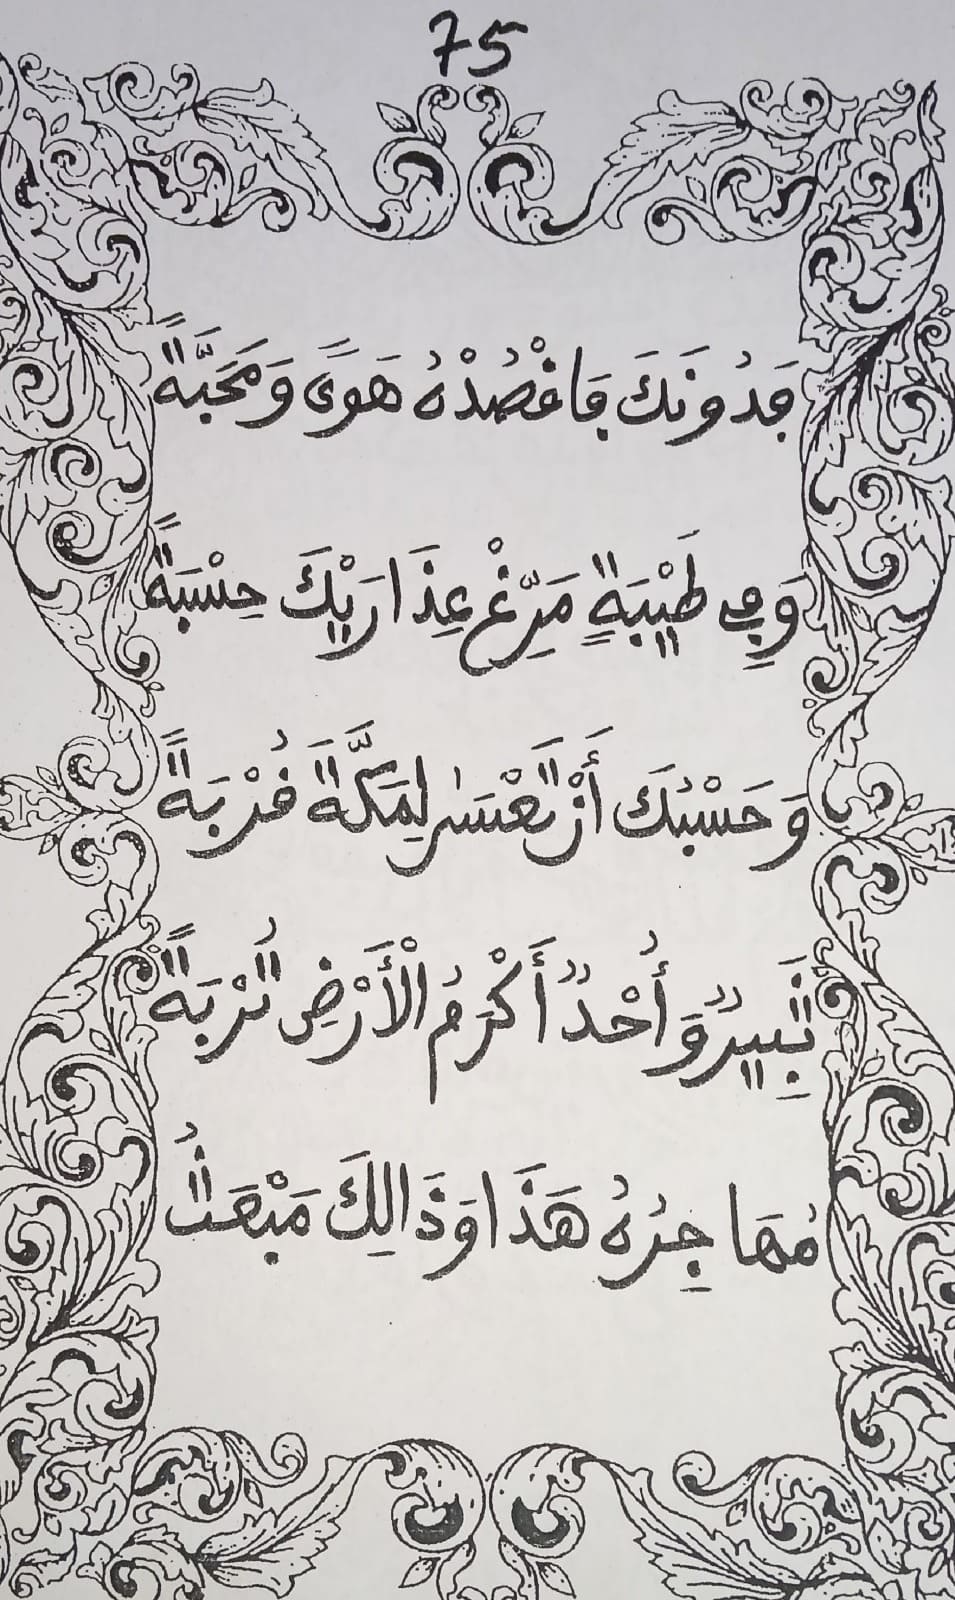 75
فَدُونَكَ فَاقْصُدْهُ هَوًى وَمَحَبَّةً
وَفِي طَيْبَةٍ مَرِّغْ عِذَارَيْكَ حِسْبَةً
وَحَسْبُكَ أَنْ لِمَكَّةَ قُرْبَةً
ثَبِيرٌ وَأُحْدٌ أَكْرَمُ الْأَرْضِ تُرْبَةً
مُهَاجِرُهُ هَذَا وَذَالِكَ مَبْعَثُ